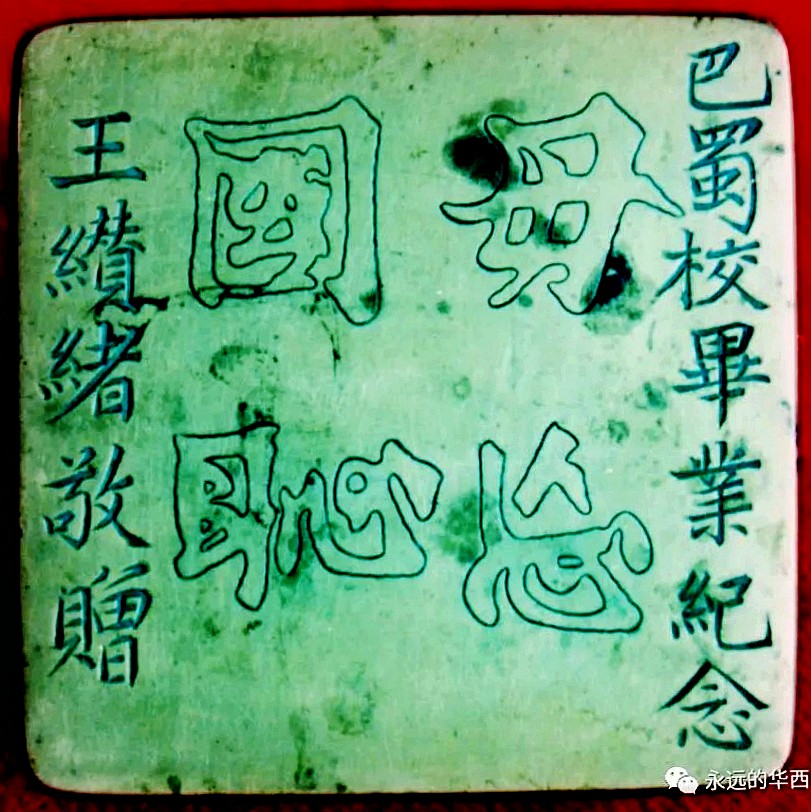 巴蜀校畢業紀念
毋忘
國恥
王纘緒敬贈
永远的华西